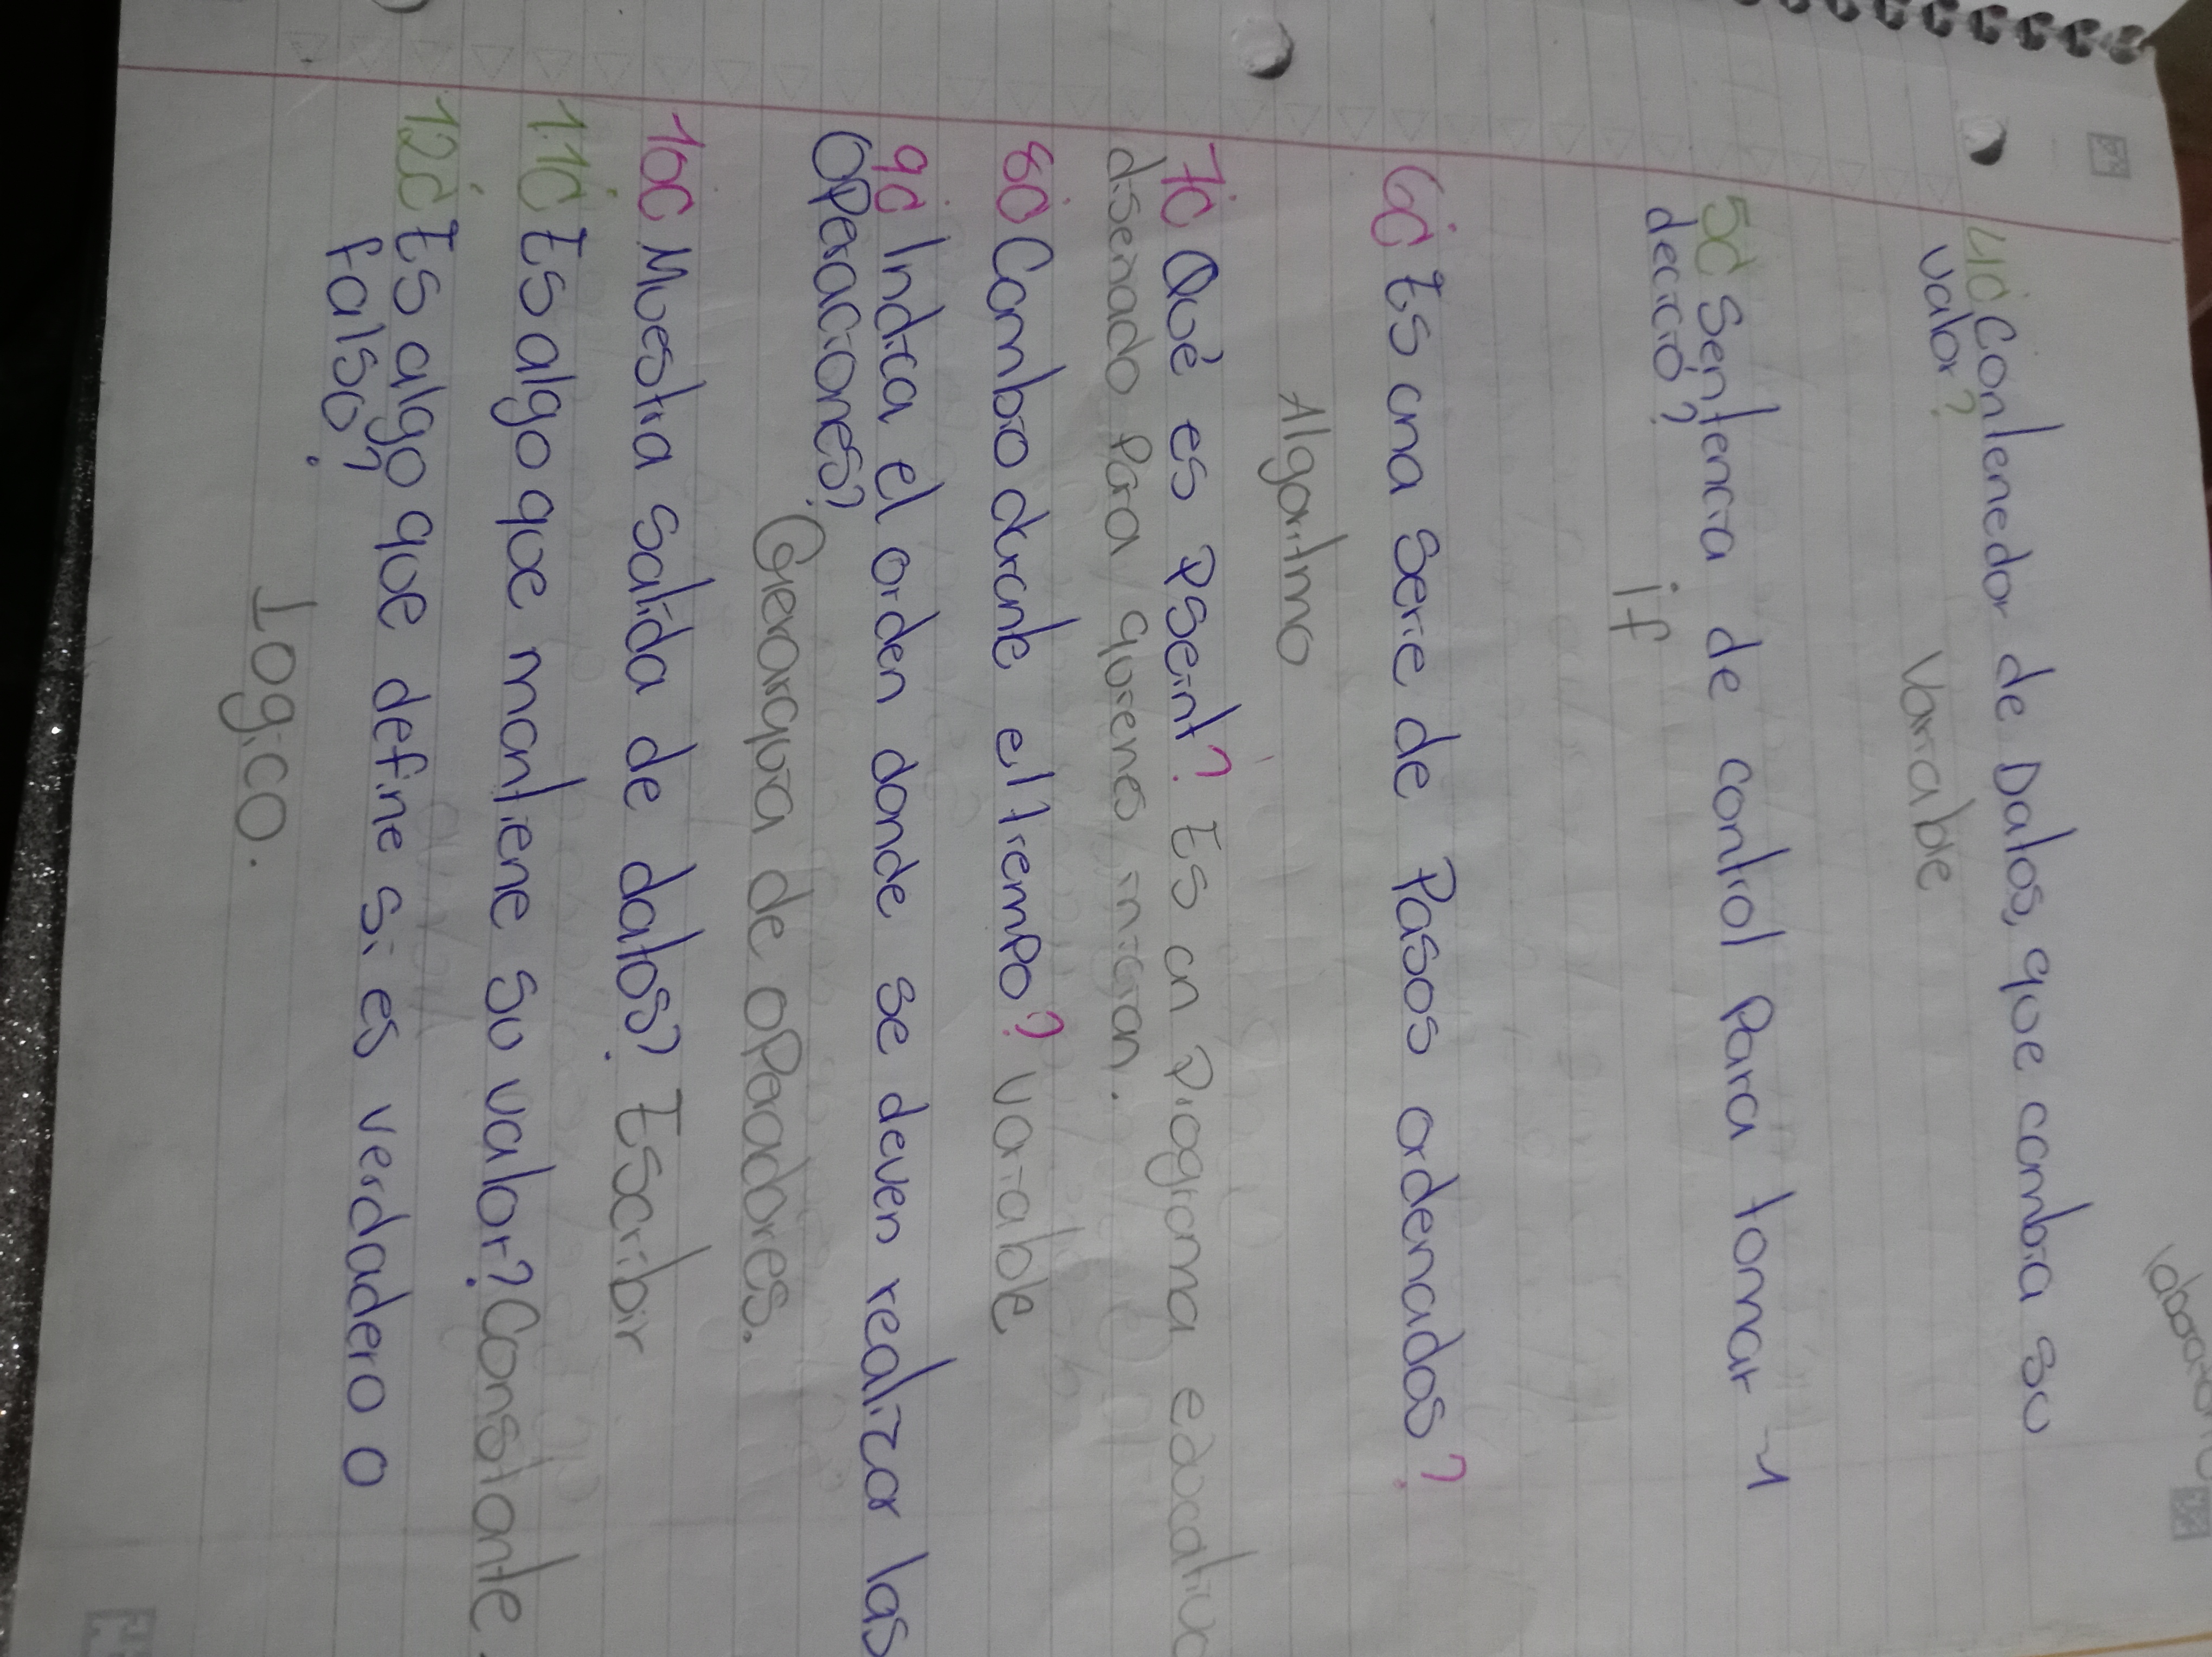 4¿Contenedor de Datos, que cambia su
valor?
Variable
5¿Sentencia de control Para tomar
decició?
if
6¿Es una serie de Pasos ordenados?
Algoritmo
7¿Qué es PSeint? Es un Programa educativo
diseñado Para quienes inician.
8¿Cambio durante el tiempo? variable
9¿Indica el orden donde se deven realizar las
Operaciones?
Gierarquia de oPeadores.
10¿Muestra salida de datos? Escribir
11¿Es algo que mantiene su valor? Constante.
12¿Es algo que define si es verdadero o
falso?
logico.